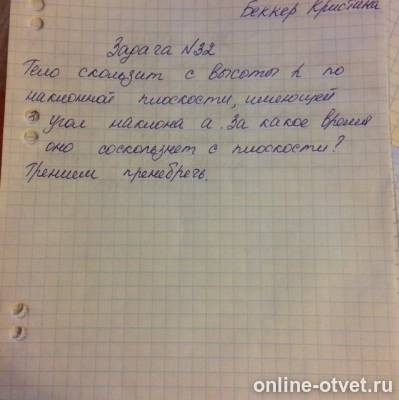 Беккер Кристина
Задача №32
Тело скользит с высоты h по
наклонной плоскости, имеющей
угол наклона а. За какое время
оно соскользнет с плоскости?
Трением пренебречь.
online-otvet.ru